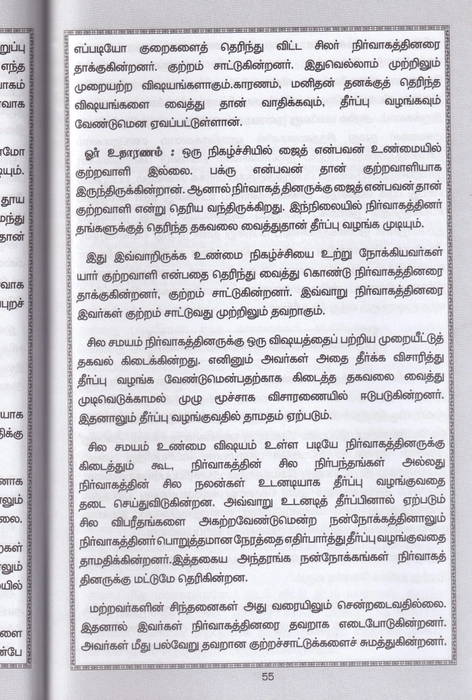 எப்படியோ குறைகளைத் தெரிந்து விட்ட சிலர் நிர்வாகத்தினரை
தாக்குகின்றனர். குற்றம் சாட்டுகின்றனர். இதுவெல்லாம் முற்றிலும்
முறையற்ற விஷயங்களாகும்.காரணம், மனிதன் தனக்குத் தெரிந்த
விஷயங்களை வைத்து தான் வாதிக்கவும், தீர்ப்பு வழங்கவும்
வேண்டுமென ஏவப்பட்டுள்ளான்.
ஓர் உதாரணம் : ஒரு நிகழ்ச்சியில் ஜைத் என்பவன் உண்மையில்
குற்றவாளி இல்லை. பக்ரு என்பவன் தான் குற்றவாளியாக
இருந்திருக்கின்றான். ஆனால் நிர்வாகத்தினருக்கு ஜைத் என்பவன் தான்
குற்றவாளி என்று தெரிய வந்திருக்கிறது. இந்நிலையில் நிர்வாகத்தினர்
தங்களுக்குத் தெரிந்த தகவலை வைத்துதான் தீர்ப்பு வழங்க முடியும்.
இது இவ்வாறிருக்க உண்மை நிகழ்ச்சியை உற்று நோக்கியவர்கள்
யார் குற்றவாளி என்பதை தெரிந்து வைத்து கொண்டு நிர்வாகத்தினரை
தாக்குகின்றனர், குற்றம் சாட்டுகின்றனர். இவ்வாறு நிர்வாகத்தினரை
இவர்கள் குற்றம் சாட்டுவது முற்றிலும் தவறாகும்.
சில சமயம் நிர்வாகத்தினருக்கு ஒரு விஷயத்தைப் பற்றிய முறையீட்டுத்
தகவல் கிடைக்கிறது. எனினும் அவர்கள் அதை தீர்க்க விசாரித்து
தீர்ப்பு வழங்க வேண்டுமென்பதற்காக கிடைத்த தகவலை வைத்து
முடிவெடுக்காமல் முழு மூச்சாக விசாரணையில் ஈடுபடுகின்றனர்.
இதனாலும் தீர்ப்பு வழங்குவதில் தாமதம் ஏற்படும்.
சில சமயம் உண்மை விஷயம் உள்ள படியே நிர்வாகத்தினருக்கு
கிடைத்தும் கூட, நிர்வாகத்தின் சில நிர்பந்தங்கள் அல்லது
நிர்வாகத்தின் சில நலன்கள் உடனடியாக தீர்ப்பு வழங்குவதை
தடை செய்துவிடுகின்றன. அவ்வாறு உடனடித் தீர்ப்பினால் ஏற்படும்
சில விபரீதங்களை அகற்றவேண்டுமென்ற நன்நோக்கத்தினாலும்
நிர்வாகத்தினர் பொறுத்தமான நேரத்தை எதிர்பார்த்து தீர்ப்பு வழங்குவதை
தாமதிக்கின்றனர்.இத்தகைய அந்தரங்க நன்நோக்கங்கள் நிர்வாகத்
தினருக்கு மட்டுமே தெரிகின்றன.
மற்றவர்களின் சிந்தனைகள் அது வரையிலும் சென்றடைவதில்லை.
இதனால் இவர்கள் நிர்வாகத்தினரை தவறாக எடைபோடுகின்றனர்.
அவர்கள் மீது பல்வேறு தவறான குற்றச்சாட்டுக்களைச் சுமத்துகின்றனர்.
55